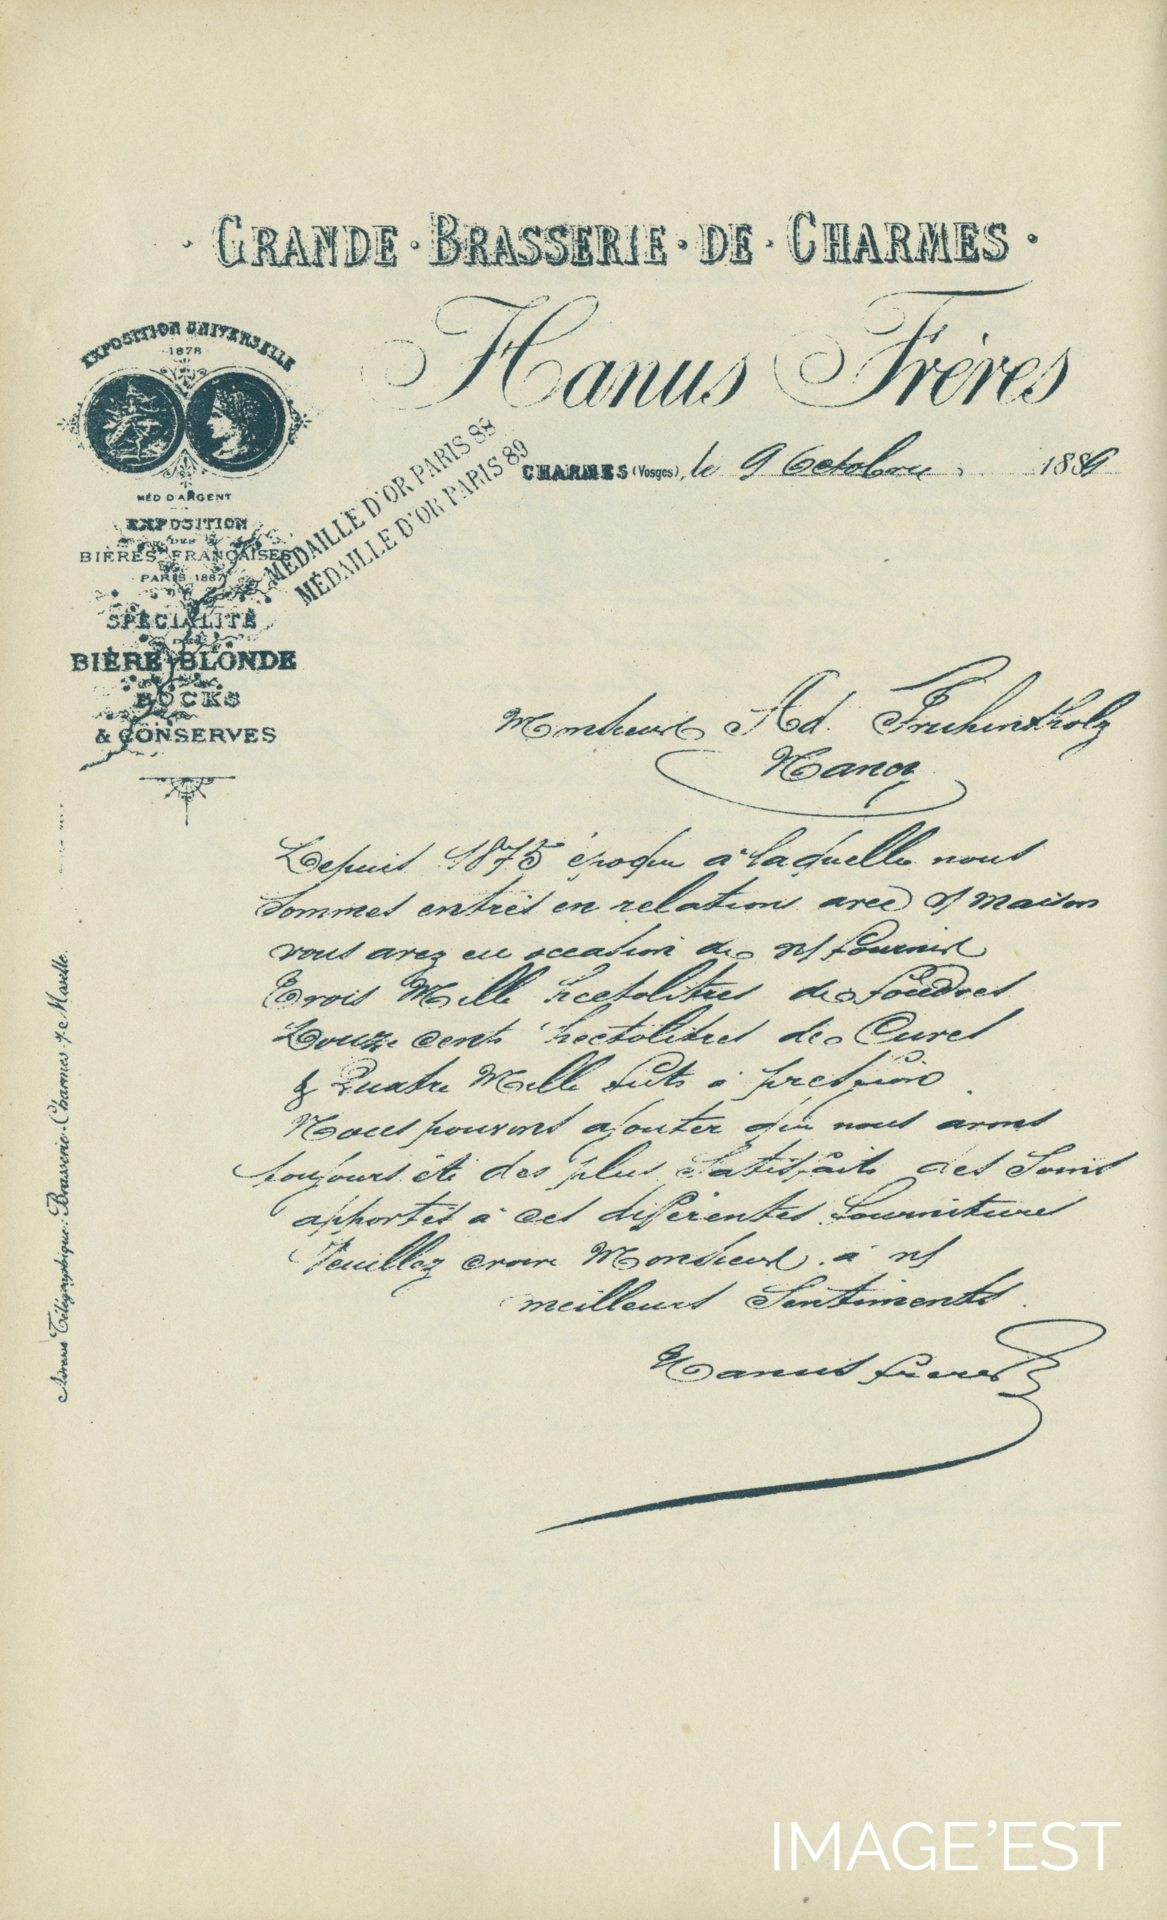 · GRANDE · BRASSERIE · DE · CHARMES ·
Hanus Frères
EXPOSITION UNIVERSELLE
1878
MÉD D'ARGENT
EXPOSITION
DES
BIÈRES FRANÇAISES
PARIS 1887
SPÉCIALITÉ
DE
BIÈRE BLONDE
BOCKS
& CONSERVES
MÉDAILLE D'OR PARIS 88
MÉDAILLE D'OR PARIS 89
CHARMES (Vosges), le 9 Octobre 1889
Monsieur Ad. Fruhinsholz
Nancy
Depuis 1875 époque à laquelle nous
sommes entrés en relations avec vs maison
vous avez eu occasion de ns fournir
Trois Mille hectolitres de foudres
Douze cents hectolitres de Cuves
& Quatre Mille futs à pression
Nous pouvons ajouter que nous avons
toujours été des plus satisfaits des soins
apportés à ces diférentes fournitures
Veuillez croire Monsieur à ns
meilleurs Sentiments.
Hanus frères
Adresse Télégraphique: Brasserie-Charmes s/ Moselle.
IMAGE'EST